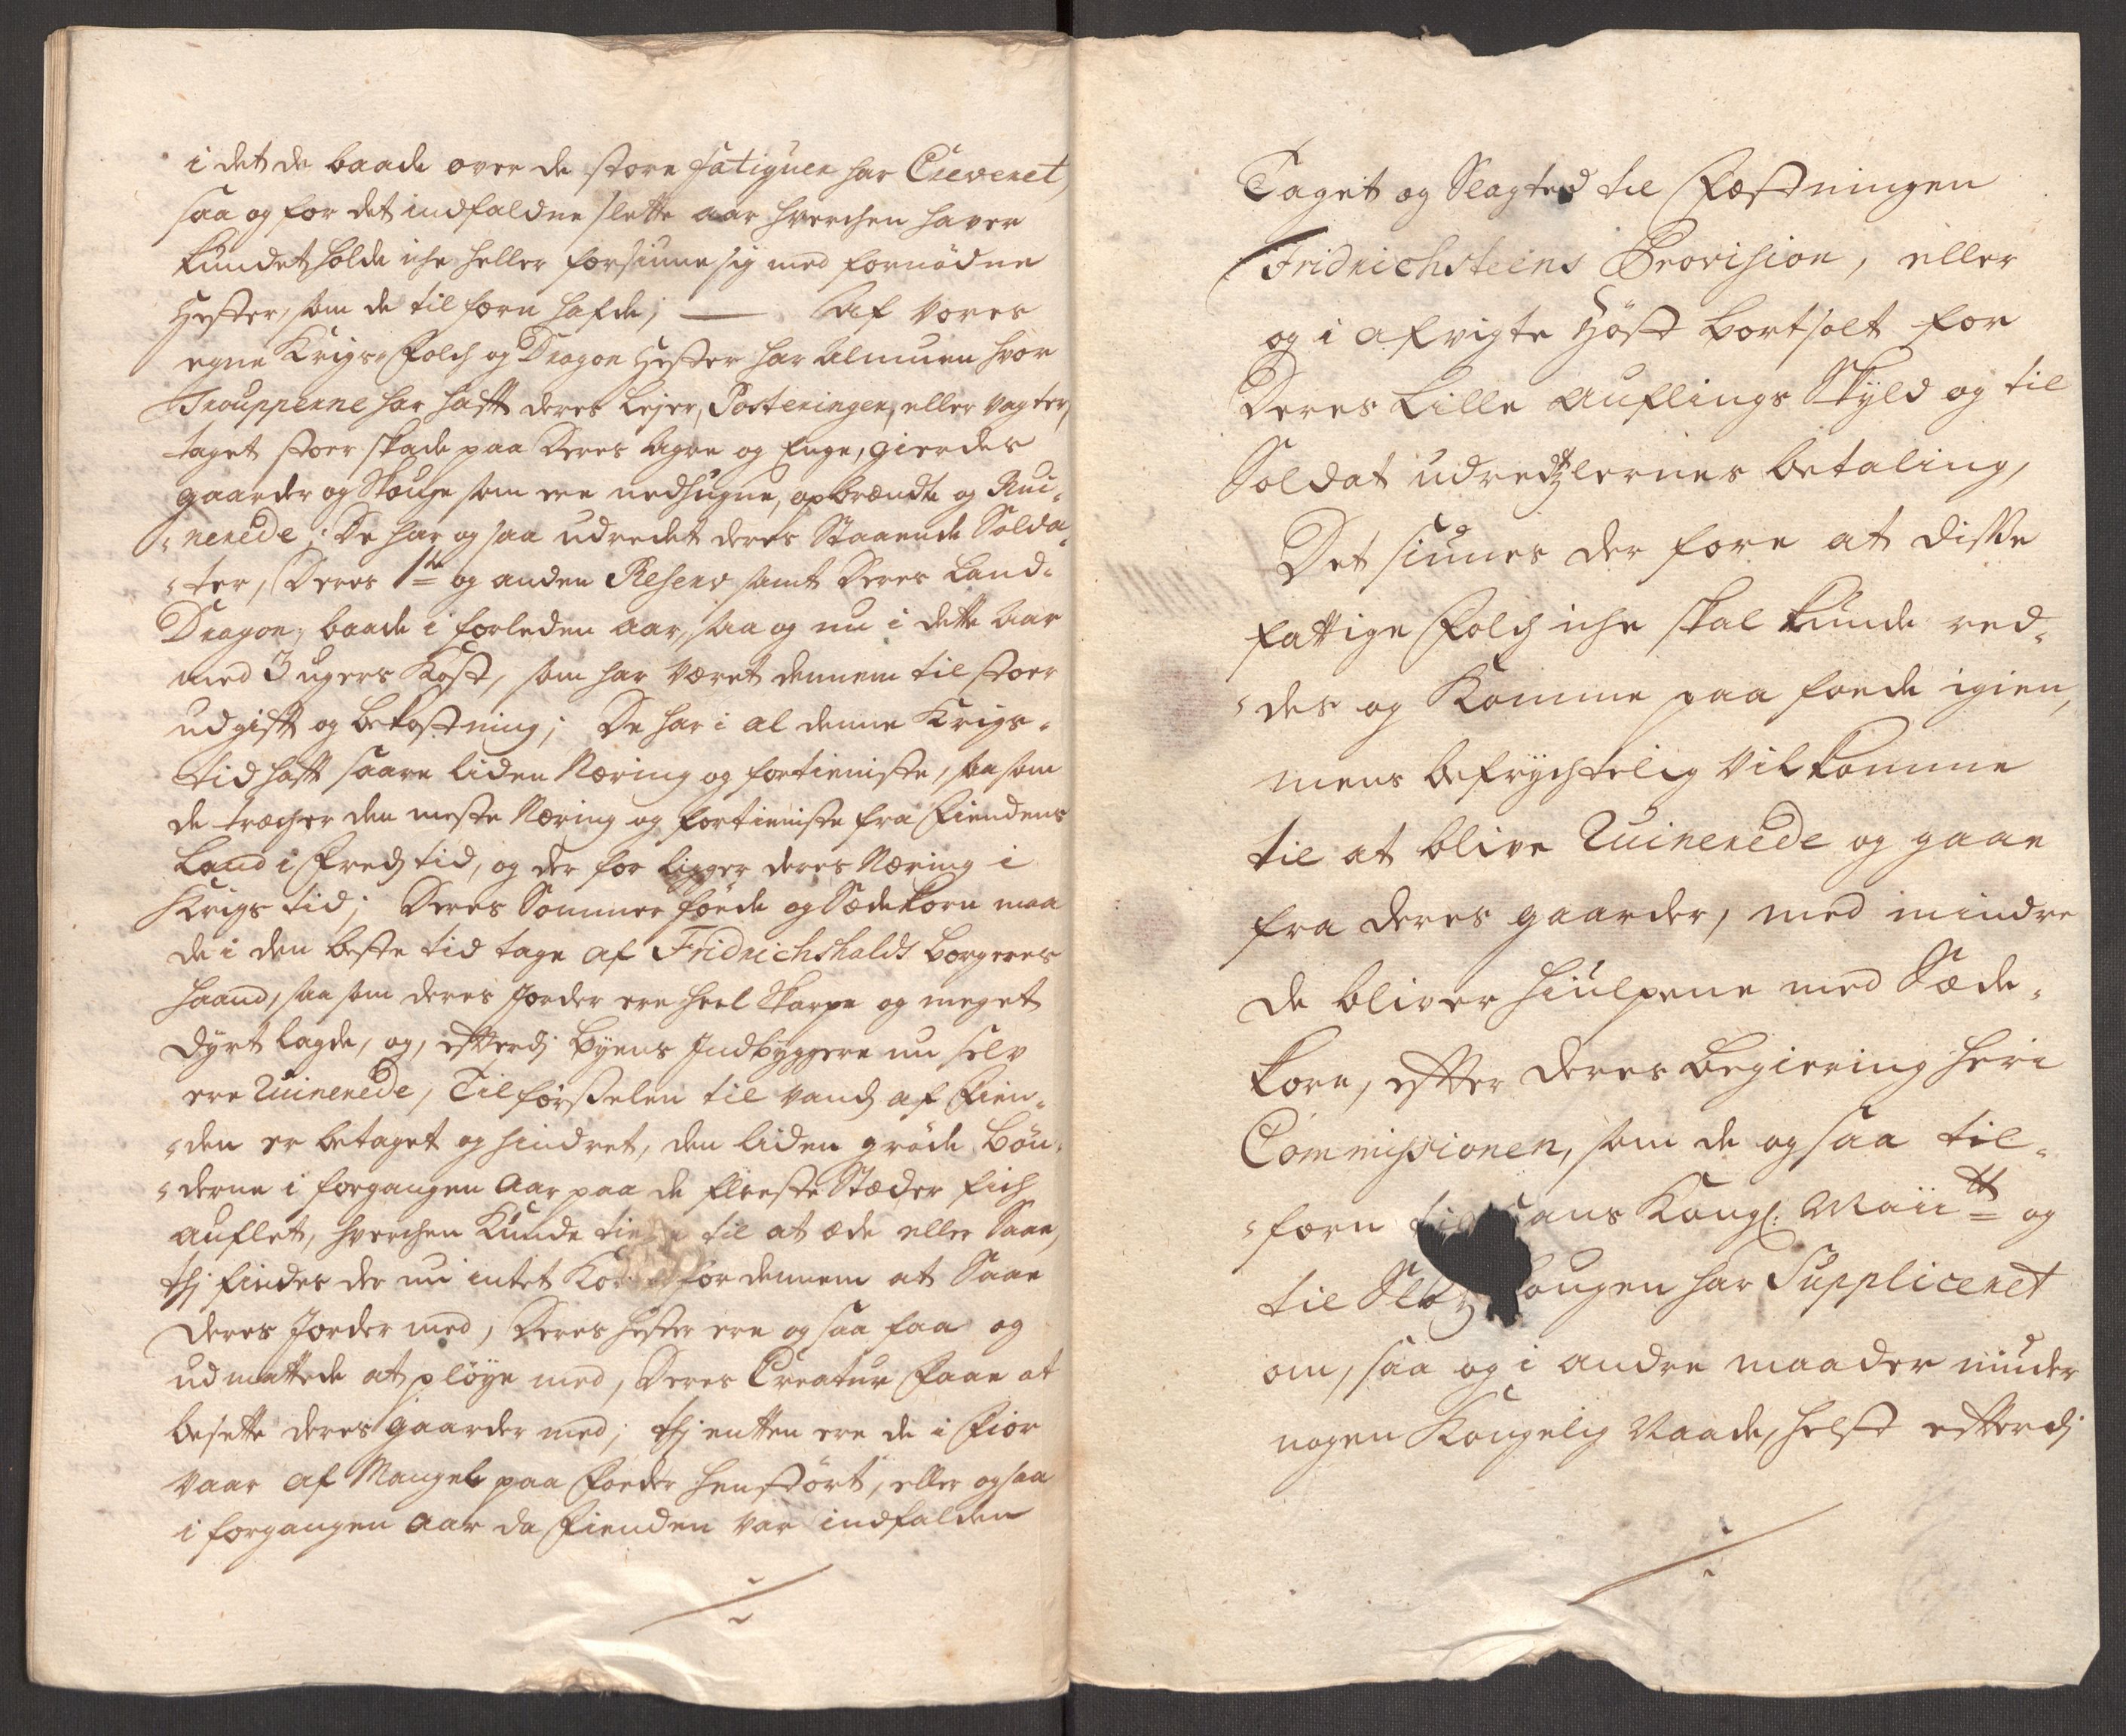 i det de baade over de store fatiguer har Creveret,
saa og for det indfaldne slette aar hverchen haver
kundet holde iche heller forsiune sig med fornödne
Hester, som de tilforn hafde; — Af vores
egne Krigs-Folch og Dragon Hester har Almuen hvor
Troupperne har hafft deres Lejer, Posteringer, eller vagter,
taget stoer skade paa deres Agre og Enge, gierdes
gaarder og Skouge som ere nedhugne, opbrændte og Rui-
-nerede; De har og saa udredet deres Staaende Solda-
-ter, Deres 1te og anden Reserv samt Deres Land-
Dragon, baade i forleden aar, saa og nu i dette Aar
med 3 ugers Kost, som har været dennem til stoer
udgifft og bekostning; De har i al denne Krigs-
tid hafft saare liden Næring og fortieniste, saasom
de træcher den meste Næring og fortieniste fra Fiendens
Land i Freds tid, og der for ligger deres Næring i
Krigs tid; Deres Sommer föede og Sædekorn maa
de i den beste tid tage af Fridrichshalds borgeres
haand, saa som deres Jorder ere heel skarpe og meget
dyrt lagde, og, efftterdj byens Indbyggere nu selv
ere Ruinerede, Tilförselen til vands af Fien-
-den er betaget og hindret, den liden gröde Bön-
-derne i forgangen Aar paa de fleeste Stæder fich
auflet, hverchen Kunde til at æde eller Saae,
thj findes der nu intet for dennem at Saae
deres Jorder med, Deres hester ere og saa faa og
udmattede at plöye med, Deres Creatur faae at
besette deres gaarder med; thj entten ere de i Fior
vaar af Mangel paa Foeder henstört, eller og saa
i forgangen Aar da Fienden var indfalden
Taget og Slagted til Festningen
Fridrichsteens Provision, eller
og i afvigte Höst bortsolt for
Deres Lille auflings Skyld og til
Soldat udredtzlernes betaling,
Det siunes der fore at disse
fattige Folch iche skal kunde red-
-des og Komme paa foede igien,
mens befrychtelig vil komme
til at blive Ruinerede og gaae
fra deres gaarder, med mindre
de bliver hiulpene med Sæde-
korn, effter deres begiering heri
Commissionen, som de og saa til-
-forn til Hans Kongl: Maiitt og
til har Suppliceret
om, saa og i andre maader niuder
nogen Kongelig Naade, helst effterdj